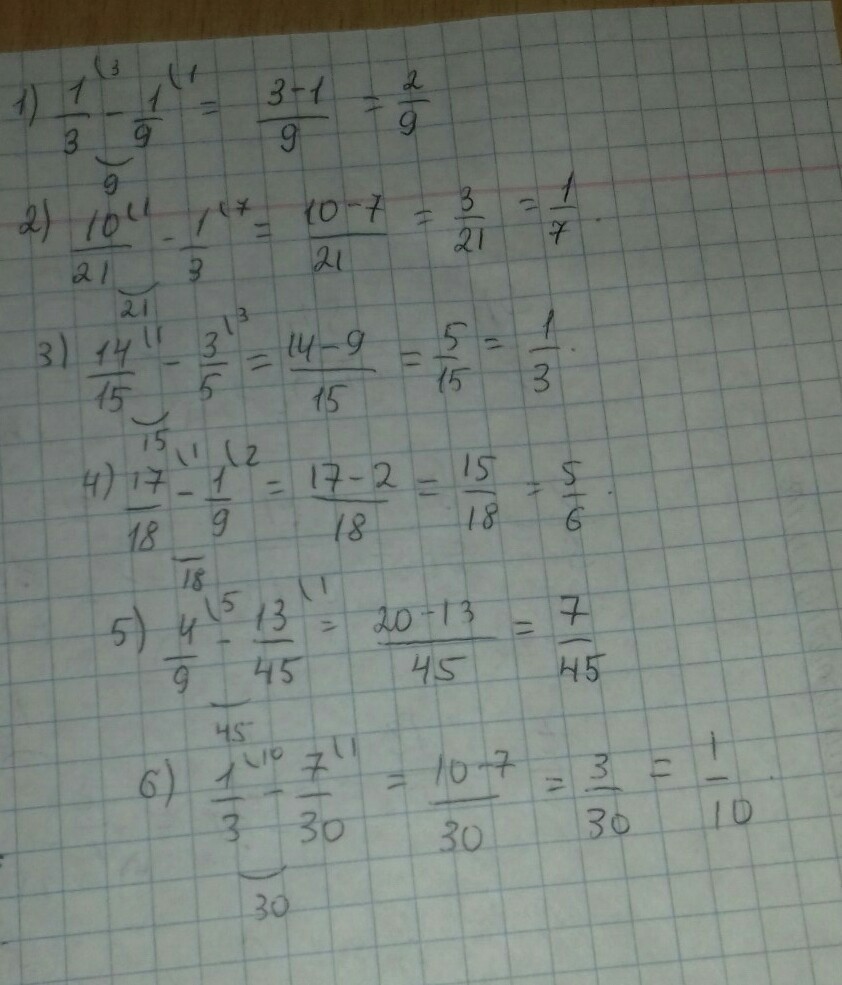 1) 1/3 ⁽³ - 1/9 ⁽¹ = (3-1)/9 = 2/9
9
2) 10/21 ⁽¹ - 1/3 ⁽⁷ = (10-7)/21 = 3/21 = 1/7.
21
3) 14/15 ⁽¹ - 3/5 ⁽³ = (14-9)/15 = 5/15 = 1/3.
15
4) 17/18 ⁽¹ - 1/9 ⁽² = (17-2)/18 = 15/18 = 5/6.
18
5) 4/9 ⁽⁵ - 13/45 ⁽¹ = (20-13)/45 = 7/45
45
6) 1/3 ⁽¹⁰ - 7/30 ⁽¹ = (10-7)/30 = 3/30 = 1/10.
30